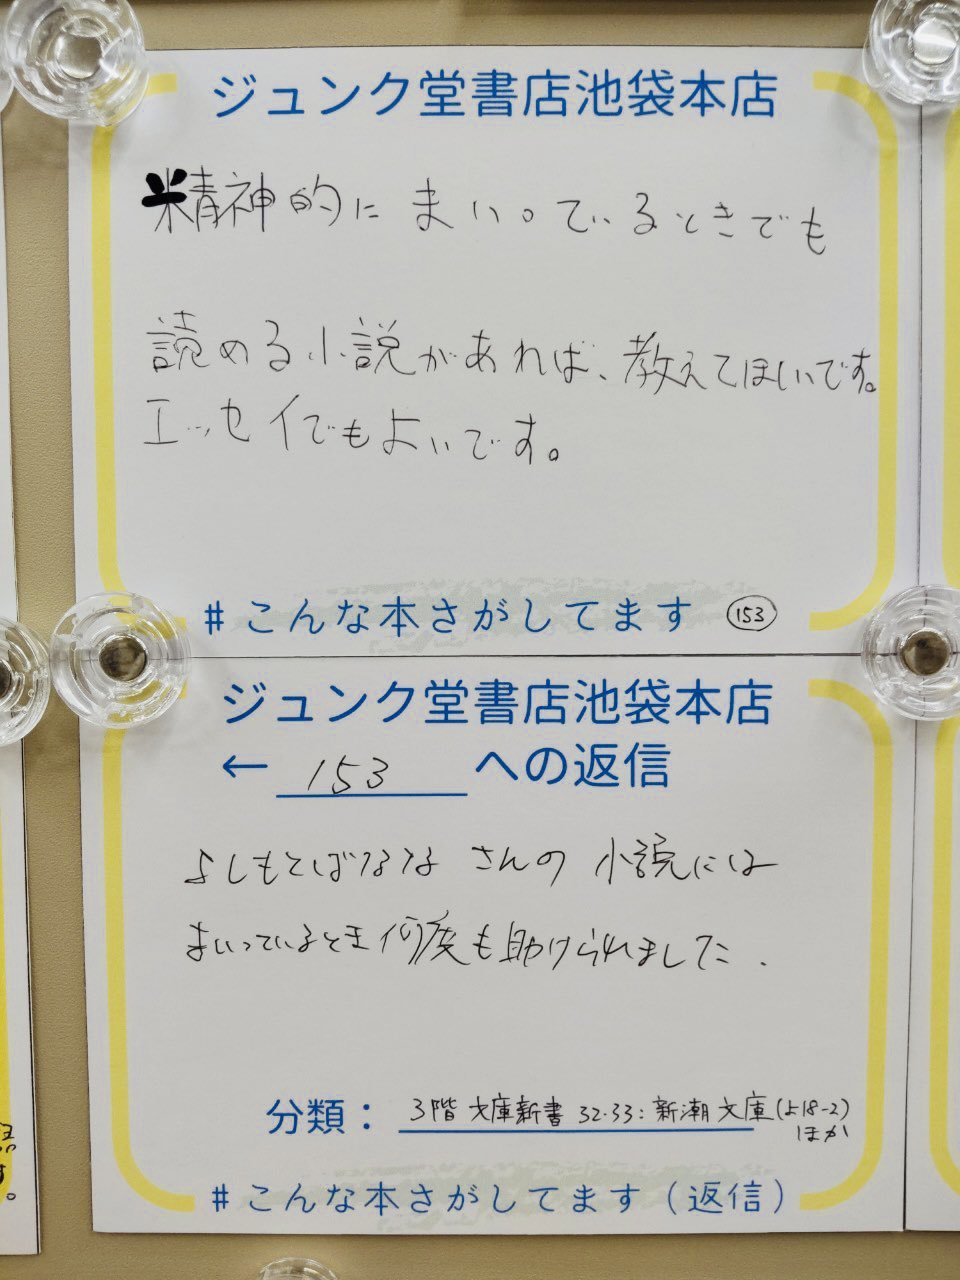 ジュンク堂書店池袋本店
精神的に まいっているときでも
読める小説があれば、教えてほしいです。
エッセイでもよいです。
#こんな本さがしてます 153
ジュンク堂書店池袋本店
← 153 への返信
よしもとばななさんの 小説には
まいっているとき何度も助けられました.
分類： 3階 文庫新書 32・33：新潮文庫(よ18-2)
ほか
#こんな本さがしてます（返信）